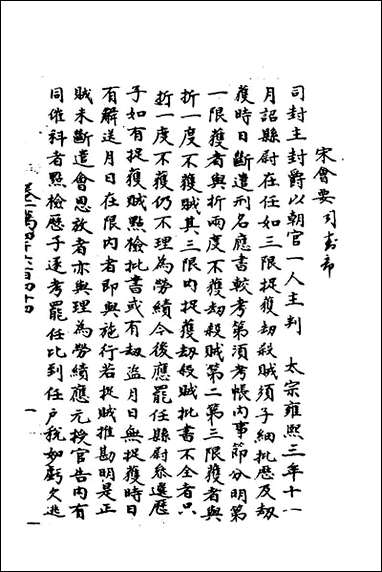 宋會要 司封部
司封主封爵以朝官一人主判　太宗雍熙三年十一
月詔縣尉在任如三限捉獲劫殺賊須子細批歷及劫
獲時日斷遣刑名應書較考第須考帳內事節分明第
一限獲者與折兩度不獲劫殺賊第二第三限獲者與
折一度不獲賊其三限內捉獲劫殺賊批書不全者只
折一度不獲仍不理為勞績今後應罷任縣尉參選歷
子如有捉獲賊點檢批書或有劫盜月日無捉獲時日
有解送月日在限內者即與施行若捉賊推勘明是正
賊未斷遣會恩放者亦與理為勞績應元授官告內有
同催科者點檢歷子逐考罷任比到任戶稅如虧欠逃
卷一萬四千六百四十四
一